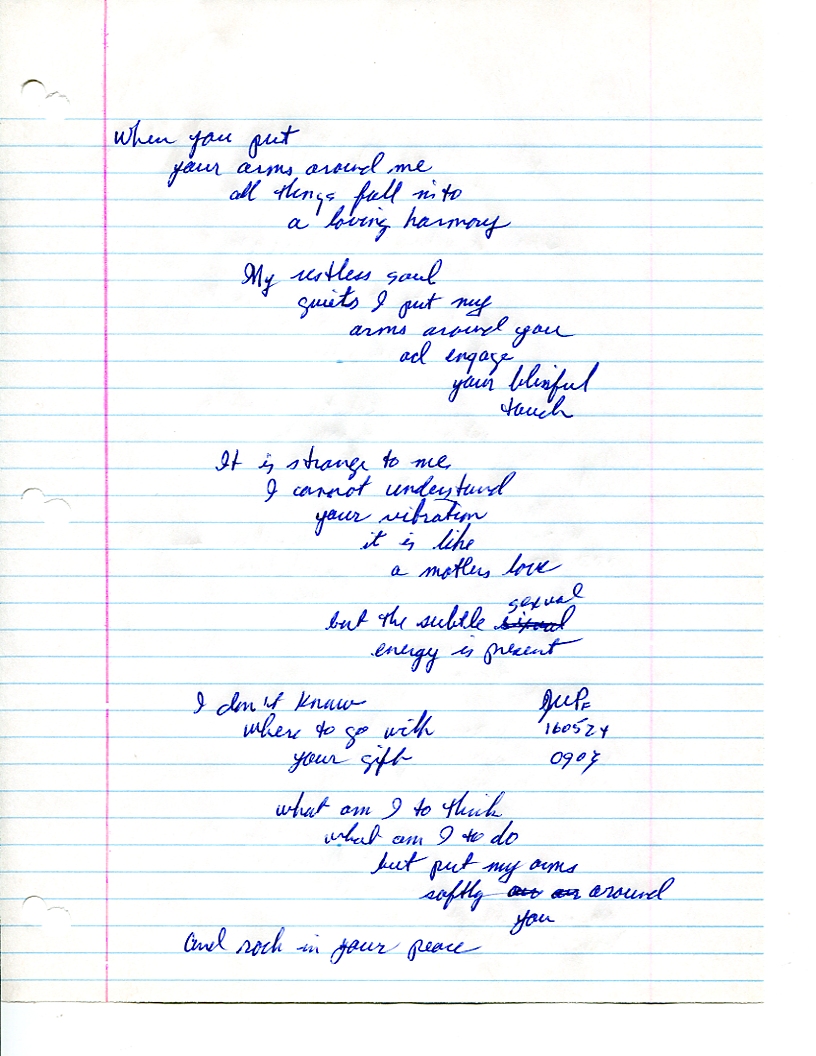 When you put
your arms around me
all things fall into
a loving harmony
My restless soul
quiets I put my
arms around you
ad engage
your blissful
touch
It is strange to me
I cannot understand
your vibration
it is like
a mothers love
sexual
but the subtle
energy is present
I don't know
where to go with
your gift
160524
what am I to think
what am I to do
but put my arms
softly around
you
and rock in your peace